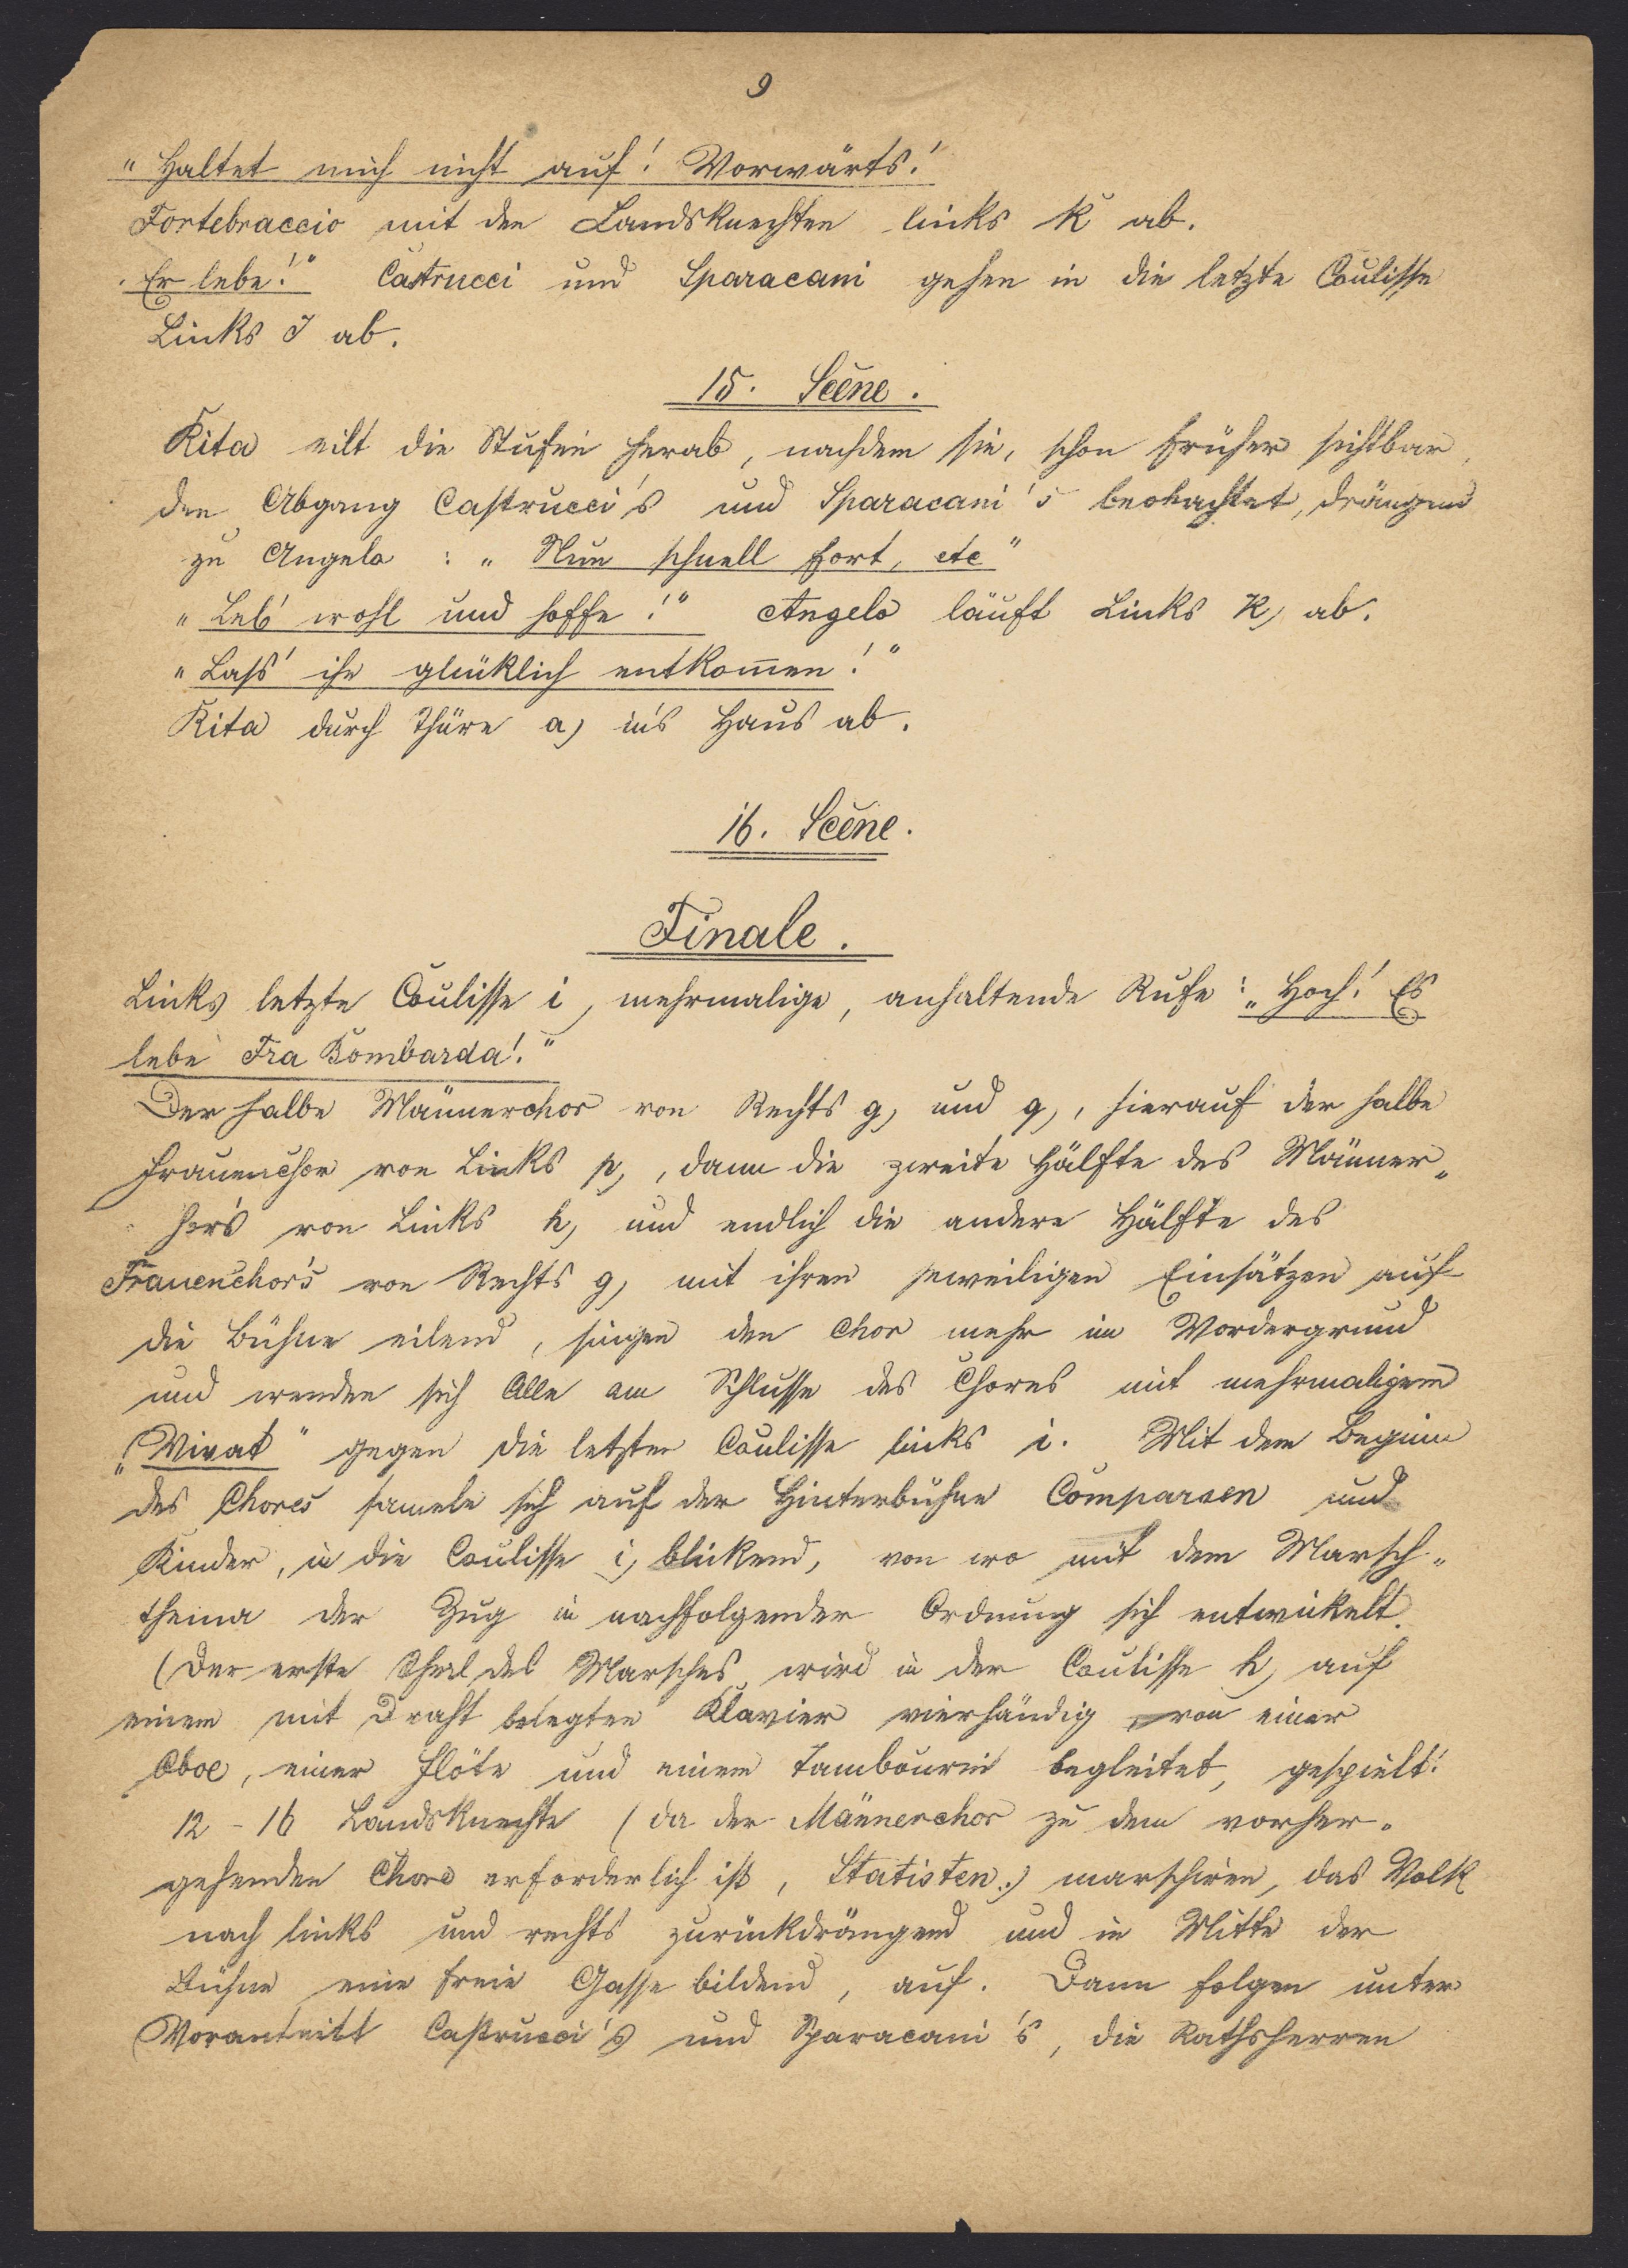 9
„Haltet mich nicht auf! Vorwärts!
Fortebraccio mit den Landsknechten links K ab.
„Er lebe!" Castrucci und Sparacani gehen in die letzte Coulisse
Links J ab.
15. Scène.
Rita eilt die Stufen herab, nachdem sie, schon früher sichtbar,
den Abgang Castrucci's und Sparacani's beobachtet, drängend
zu Angelo: „Nun schnell fort, etc"
„Leb' wohl und hoffe!" Angelo läuft Links K) ab.
„Lass' ihn glücklich entkom̄en!"
Rita durch Thüre a) in's Haus ab.
16. Scène.
Finale.
Links letzte Coulisse i, mehrmalige, anhaltende Rufe: „Hoch! Es
lebe Fra Bombarda!."
Der halbe Männerchor von Rechts g) und q), hierauf der halbe
Frauenchor von Links p), dann die zweite Hälfte des Männer„
hor's von Links h) und endlich die andere Hälfte des
Frauenchor's von Rechts g) mit ihren jeweiligen Einsätzen auf
die Bühne eilend, singen den Chor mehr im Vordergrund
und wenden sich Alle am Schlusse des Chores mit mehrmaligem
„Vivat" gegen die letzte Coulisse links i. Mit dem Beginn
des Chores sam̄eln sich auf der Hinterbühne Comparsen und
Kinder, in die Coulisse i) blickend, von wo mit dem Marsch„
thema der Zug in nachfolgender Ordnung sich entwickelt.
(Der erste Theil des Marsches wird in der Coulisse h) auf
einem mit Draht belegten Klavier vierhändig, von einer
Oboe, einer Flöte und einem Tambourin begleitet, gespielt.
12 - 16 Landsknechte (da der Männerchor zu dem vorher„
gehenden Chore erforderlich ist, Statisten.) marschiren, das Volk
nach links und rechts zurückdrängend und in Mitte der
Bühne eine freie Gasse bildend, auf. Dann folgen unter
Vorantritt Castrucci's und Sparacani's, die Rathsherren